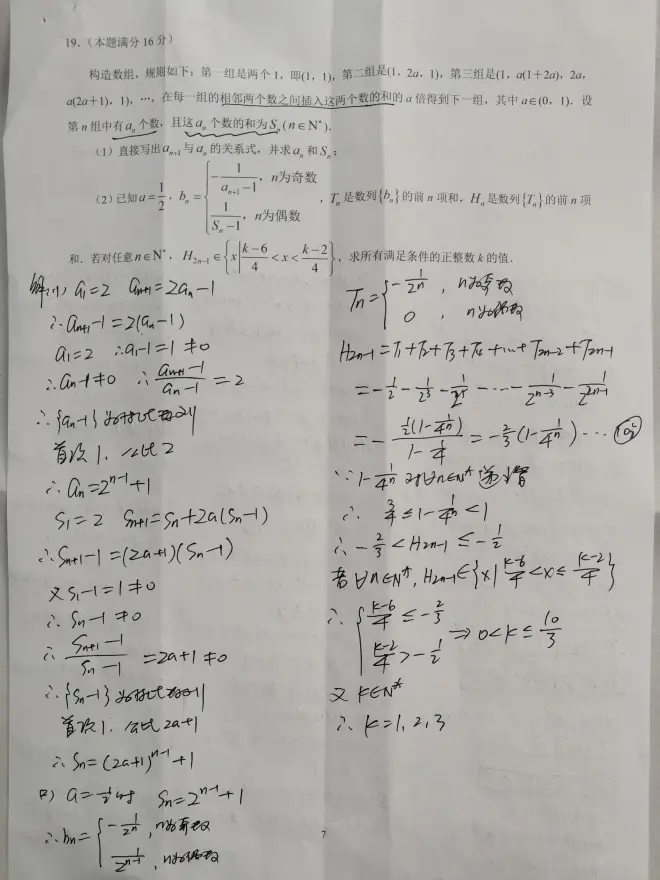 19.（本题满分16分）
构造数组，规则如下：第一组是两个1，即(1，1)，第二组是(1，2a，1)，第三组是(1，a(1+2a)，2a，
a(2a+1)，1)，…，在每一组的相邻两个数之间插入这两个数的和的a倍得到下一组，其中a∈(0，1)．设
第n组中有aₙ个数，且这aₙ个数的和为Sₙ(n∈N*)．
（1）直接写出aₙ₊₁与aₙ的关系式，并求aₙ和Sₙ；
（2）已知a=1/2，bₙ={-1/(aₙ₊₁-1)，n为奇数；1/(Sₙ-1)，n为偶数，Tₙ是数列{bₙ}的前n项和，Hₙ是数列{Tₙ}的前n项
和．若对任意n∈N*，H₂ₙ₋₁∈{x|(k-6)/4<x<(k-2)/4}，求所有满足条件的正整数k的值．
解:(1) a₁=2 aₙ₊₁=2aₙ-1
∴aₙ₊₁-1=2(aₙ-1)
a₁=2 ∴a₁-1=1≠0
∴aₙ-1≠0 ∴(aₙ₊₁-1)/(aₙ-1)=2
∴{aₙ-1}为等比数列
首项1，公比2
∴aₙ=2ⁿ⁻¹+1
S₁=2 Sₙ₊₁=Sₙ+2a(Sₙ-1)
∴Sₙ₊₁-1=(2a+1)(Sₙ-1)
又S₁-1=1≠0
∴Sₙ-1≠0
∴(Sₙ₊₁-1)/(Sₙ-1)=2a+1≠0
∴{Sₙ-1}为等比数列
首项1，公比2a+1
∴Sₙ=(2a+1)ⁿ⁻¹+1
(2) a=1/2时 Sₙ=2ⁿ⁻¹+1
∴bₙ={-1/2ⁿ，n为奇数；1/2ⁿ⁻¹，n为偶数
Tₙ={-1/2ⁿ，n为奇数；0，n为偶数
H₂ₙ₋₁=T₁+T₂+T₃+T₄+…+T₂ₙ₋₂+T₂ₙ₋₁
=-1/2-1/2³-1/2⁵-…-1/2²ⁿ⁻³-1/2²ⁿ⁻¹
=-(1/2(1-1/4ⁿ))/(1-1/4)=-2/3(1-1/4ⁿ)…
∵1-1/4ⁿ对∀n∈N*递增
∴3/4≤1-1/4ⁿ<1
∴-2/3<H₂ₙ₋₁≤-1/2
若∀n∈N*，H₂ₙ₋₁∈{x|(k-6)/4<x≤(k-2)/4}
∴{(k-6)/4≤-2/3；(k-2)/4>-1/2 ⇒0<k≤10/3
又k∈N*
∴k=1,2,3
7